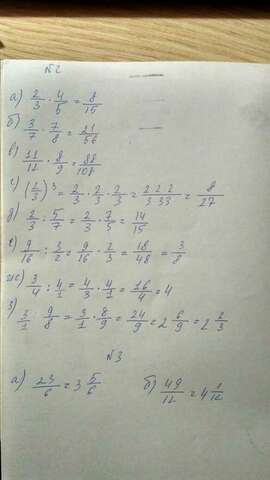 №2
а) 2/3 · 4/5 = 8/15
б) 3/7 · 7/8 = 21/56
в) 11/12 · 8/9 = 88/108
г) (2/3)³ = 2/3 · 2/3 · 2/3 = 2 2 2/3 3 3 = 8/27
д) 2/3 : 5/7 = 2/3 · 7/5 = 14/15
е) 9/16 : 3/2 = 9/16 · 2/3 = 18/48 = 3/8
ж) 3/4 : 4/1 = 4/3 · 4/1 = 16/4 = 4
з) 3/1 : 9/8 = 3/1 · 8/9 = 24/9 = 2 6/9 = 2 2/3
№3
а) 23/6 = 3 5/6 б) 49/12 = 4 1/12